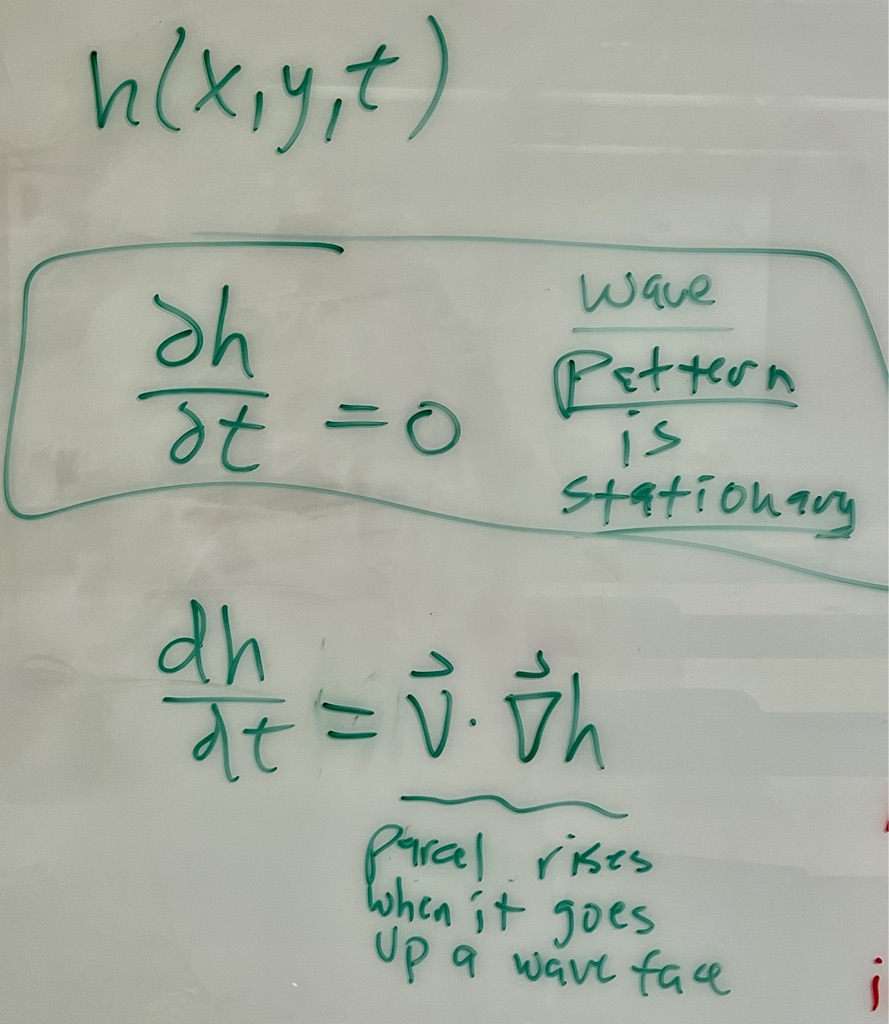 h(x,y,t)
∂h/∂t = 0
Wave
Pattern
is
stationary
dh/dt = v⃗ · ∇⃗h
parcel rises
when it goes
up a wave face
i